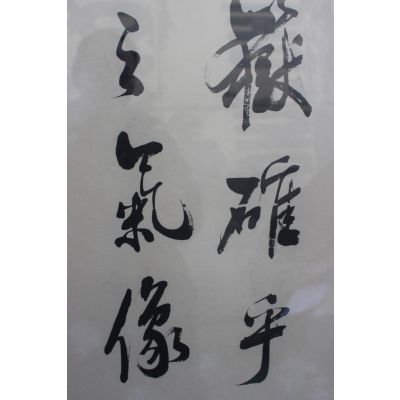 嶽確乎
之氣像